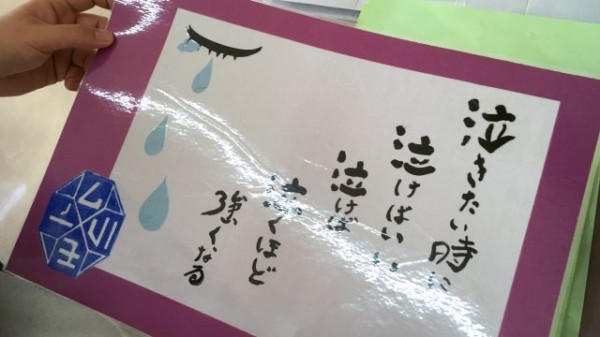 泣きたい時に
泣けばいい
泣けば
泣くほど
強くなる